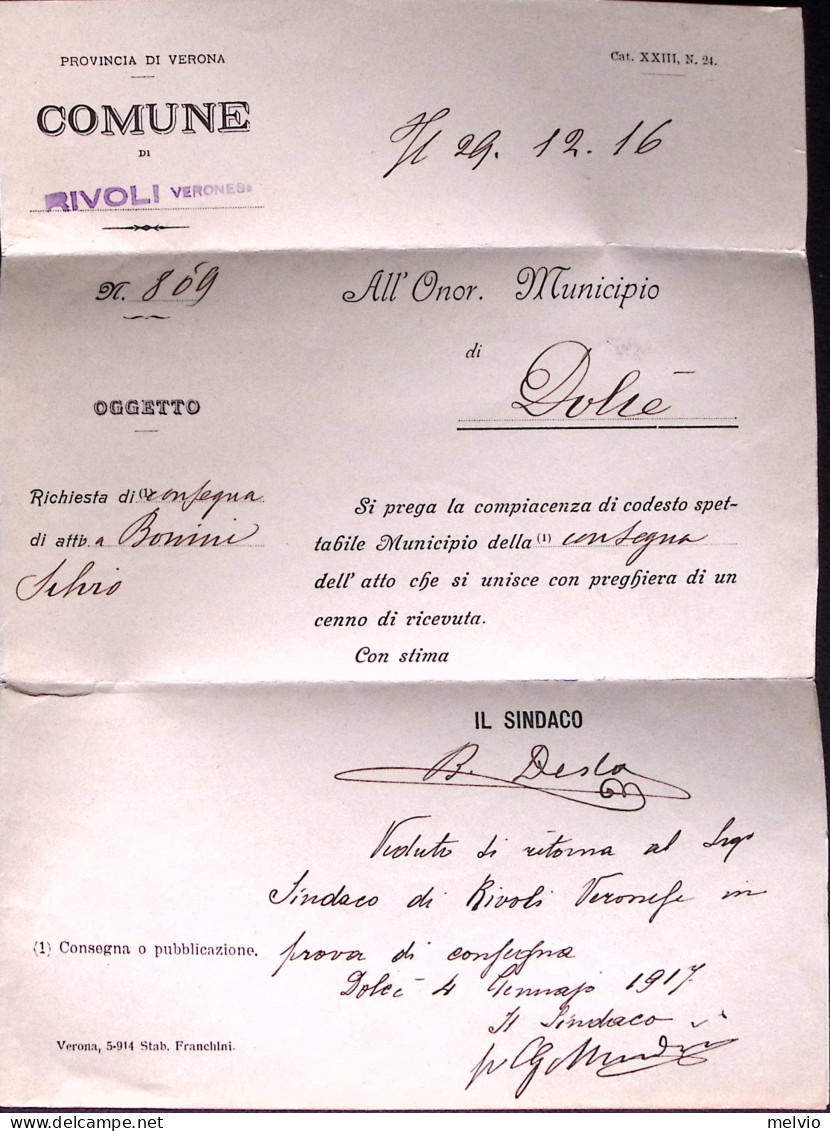 PROVINCIA DI VERONA
Cat. XXIII, N. 24.
COMUNE
DI
RIVOLI VERONESE
Il 29. 12. 16
N. 869
All' Onor. Municipio
di
Dolcè
OGGETTO
Richiesta di (1) consegna
di atto a Bonini
Silvio
Si prega la compiacenza di codesto spet-
tabile Municipio della (1) consegna
dell' atto che si unisce con preghiera di un
cenno di ricevuta.
Con stima
IL SINDACO
B. Desto
Veduto si ritorna al Sigr
Sindaco di Rivoli Veronese in
prova di consegna
Dolcè 4 Gennajo 1917
Il Sindaco
(1) Consegna o pubblicazione.
Verona, 5-914 Stab. Franchini.
melvio